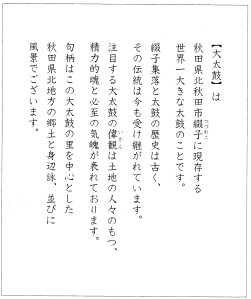 【大太鼓】は
秋田県北秋田市綴子に現存する
つづれこ
世界一大きな太鼓のことです。
綴子集落と太鼓の歴史は古く、
その伝統は今も受け継がれています。
注目する大太鼓の偉観は土地の人々のもつ、
いかん
精力的魂と必至の気魄が表れております。
句柄はこの大太鼓の里を中心とした
秋田県北地方の郷土と身辺詠、並びに
風景でございます。